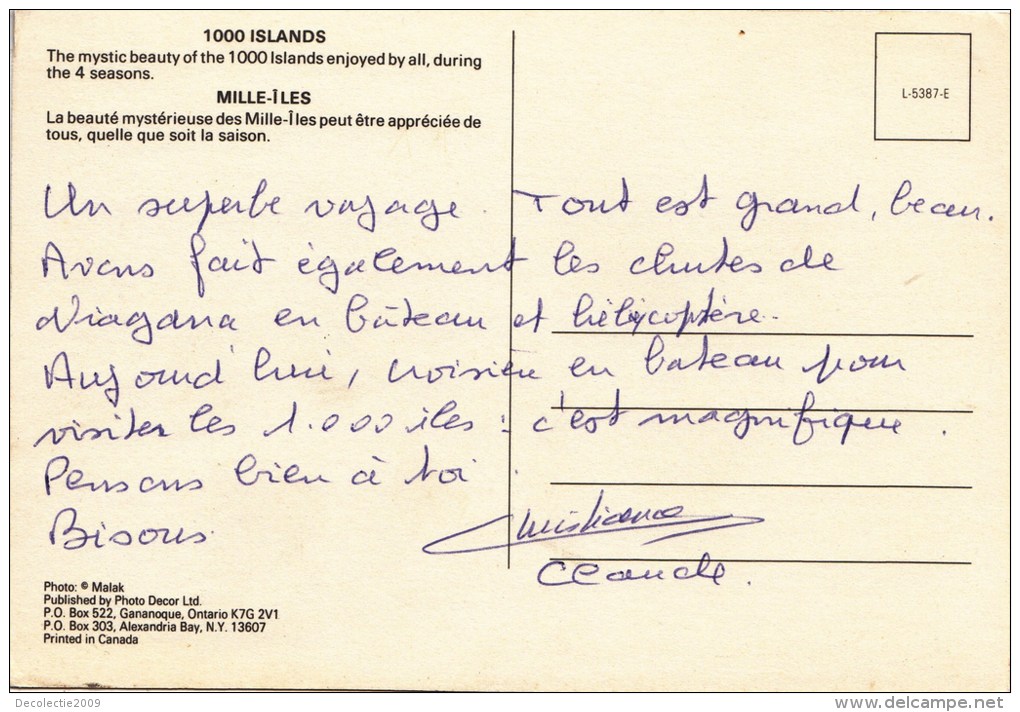 1000 ISLANDS
The mystic beauty of the 1000 Islands enjoyed by all, during
the 4 seasons.
MILLE-ÎLES
La beauté mystérieuse des Mille-Îles peut être appréciée de
tous, quelle que soit la saison.
L-5387-E
Un superbe voyage. Tout est grand, beau.
Avons fait également les chutes de
Niagana en bâteau et hélicoptère.
Aujourd'hui, croisière en bateau pour
visiter les 1.000 iles : c'est magnifique.
Pensons bien à toi.
Bisous.
Christiane
Claude.
Photo: © Malak
Published by Photo Decor Ltd.
P.O. Box 522, Gananoque, Ontario K7G 2V1
P.O. Box 303, Alexandria Bay, N.Y. 13607
Printed in Canada
Decolectie2009
www.delcampe.net